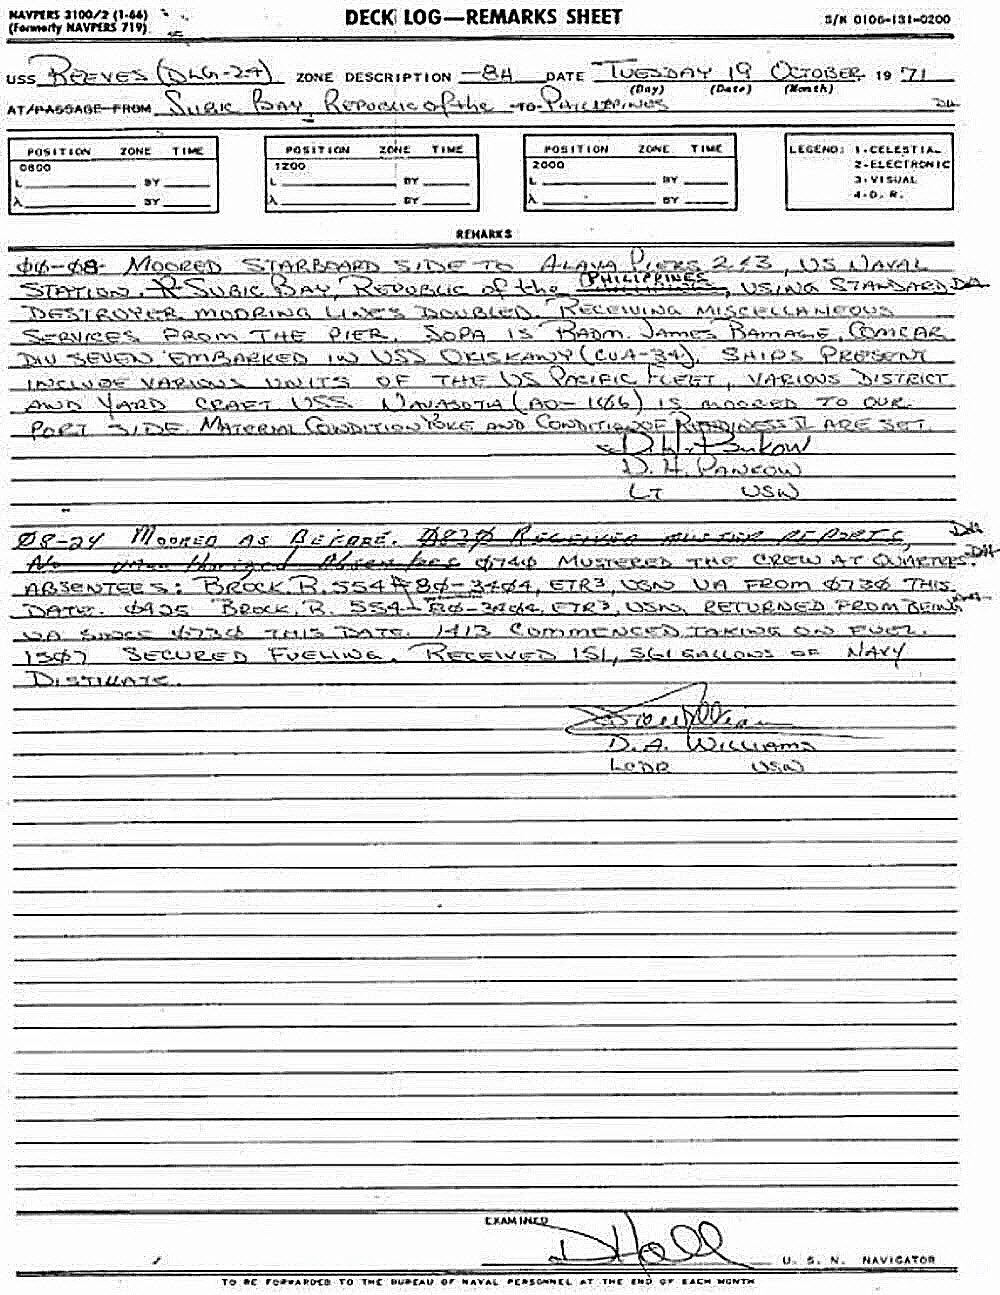 NAVPERS 3100/2 (1-66)
(Formerly NAVPERS 719)
DECK LOG—REMARKS SHEET
S/N 0106-131-0200
USS REEVES (DLG-24) ZONE DESCRIPTION -8H DATE TUESDAY 19 OCTOBER 19 71
(Day) (Date) (Month)
AT/PASSAGE FROM SUBIC BAY, REPUBLIC of the TO PHILIPPINES DH
POSITION ZONE TIME
0800
L BY
λ BY
POSITION ZONE TIME
1200
L BY
λ BY
POSITION ZONE TIME
2000
L BY
λ BY
LEGEND: 1-CELESTIAL
2-ELECTRONIC
3-VISUAL
4-D. R.
REMARKS
ØØ-Ø8 MOORED STARBOARD SIDE TO ALAVA PIERS 2 & 3, US NAVAL
STATION, R SUBIC BAY, REPUBLIC of the PHILIPPINES, USING STANDARD DH
DESTROYER MOORING LINES DOUBLED. RECEIVING MISCELLANEOUS
SERVICES FROM THE PIER. SOPA IS RADM. JAMES RAMAGE, COMCAR
DIV SEVEN EMBARKED IN USS ORISKANY (CVA-34). SHIPS PRESENT
INCLUDE VARIOUS UNITS OF THE US PACIFIC FLEET, VARIOUS DISTRICT
AND YARD CRAFT. USS NAVASOTA (AO-106) IS MOORED TO OUR
PORT SIDE. MATERIAL CONDITION YOKE AND CONDITION OF READINESS II ARE SET.
D. H. Pankow
D. H. PANKOW
LT USN
Ø8-24 MOORED AS BEFORE. Ø82Ø RECEIVED MUSTER REPORTS, DH
No Unauthorized Absentees Ø74Ø MUSTERED THE CREW AT QUARTERS. DH
ABSENTEES: BROCK, R. 554 80-3404, ETR3, USN UA FROM Ø73Ø THIS
DATE. Ø925 BROCK, R. 554-80-3404, ETR3, USN, RETURNED FROM BEING DH
UA SINCE Ø73Ø THIS DATE. 1413 COMMENCED TAKING ON FUEL.
15Ø7 SECURED FUELING. RECEIVED 151,561 GALLONS OF NAVY
DISTILLATE.
D. A. WILLIAMS
LCDR USN
EXAMINED
D Hall
U. S. N. NAVIGATOR
TO BE FORWARDED TO THE BUREAU OF NAVAL PERSONNEL AT THE END OF EACH MONTH